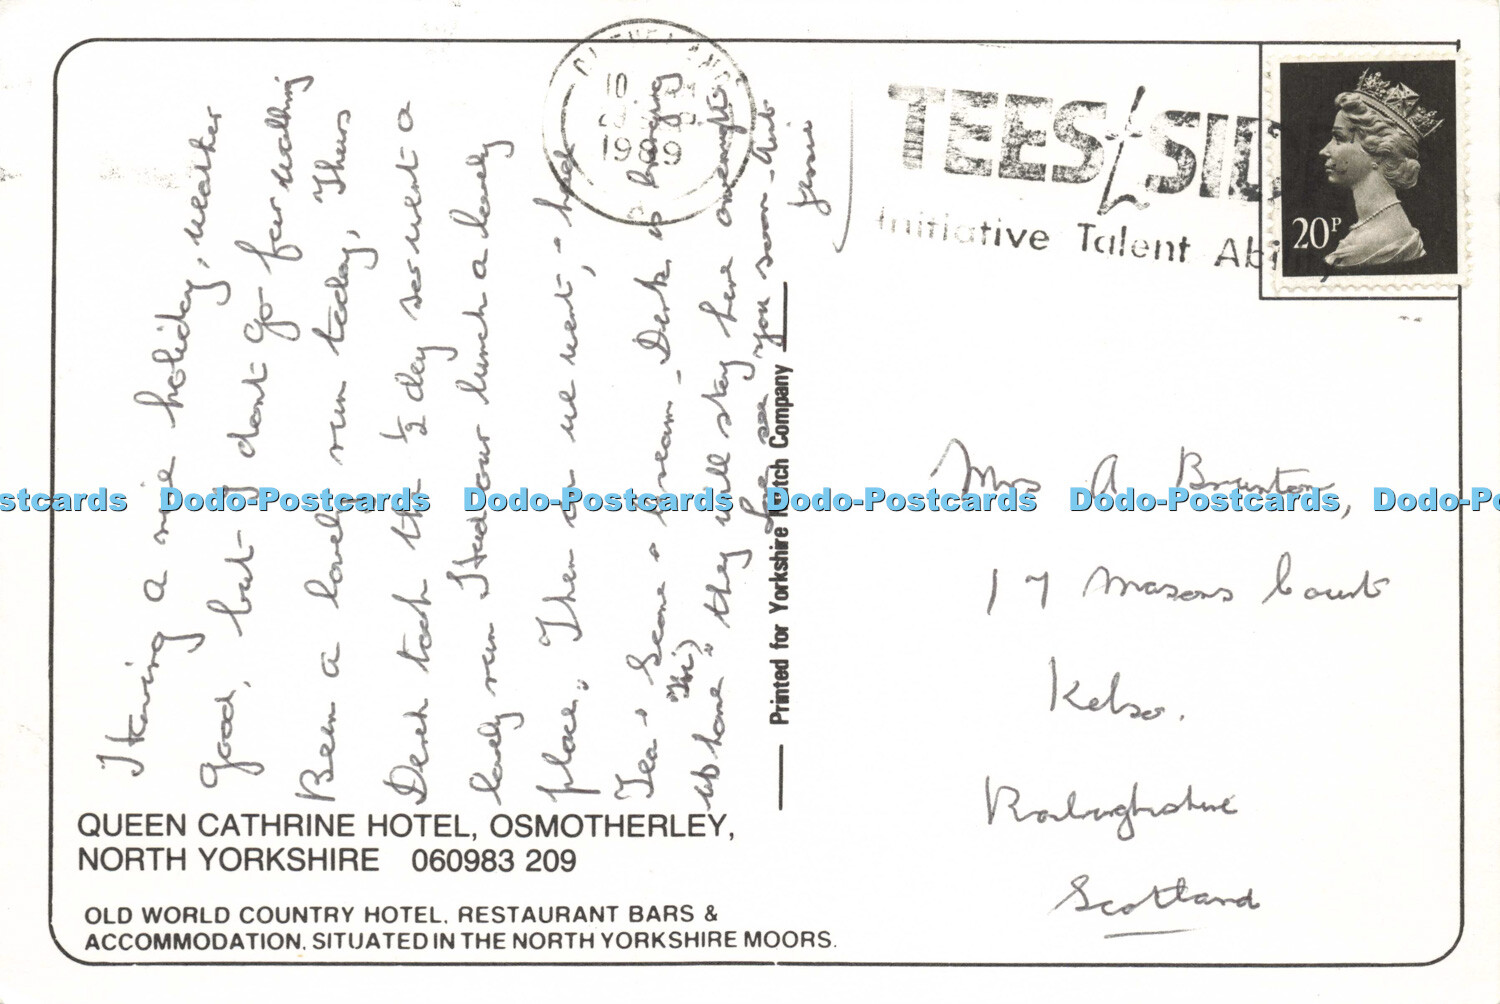 CLEVELAND
10
1989
TEES/SIDE
Initiative Talent Ability
20P
Having a nice holiday, weather
good, but I dont go far walking
Been a lovely run today, Thurs
Derek took the ½ day so went a
lovely run Had our lunch a lovely
place. Then as we went, had
Tea & Scone & cream. Derek is bringing
up home, they will stay here overnight
(Fri)
see you soon. Aunt
Jessie
Printed for Yorkshire Match Company
Mrs A Brunton,
17 Masons Court
Kelso.
Roxburghshire
Scotland
QUEEN CATHRINE HOTEL, OSMOTHERLEY,
NORTH YORKSHIRE 060983 209
OLD WORLD COUNTRY HOTEL. RESTAURANT BARS &
ACCOMMODATION. SITUATED IN THE NORTH YORKSHIRE MOORS.
stcards Dodo-Postcards Dodo-Postcards Dodo-Postcards Dodo-Postcards Dodo-Po